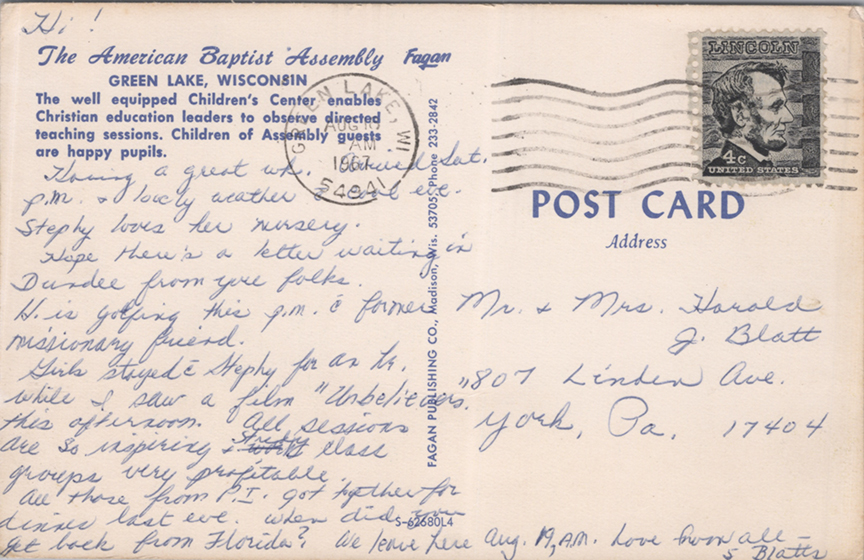 Hi!
The American Baptist Assembly Fagan
GREEN LAKE, WISCONSIN
The well equipped Children's Center enables
Christian education leaders to observe directed
teaching sessions. Children of Assembly guests
are happy pupils.
GREEN LAKE, WI.
AUG 16
AM
1967
54941
LINCOLN
4c
UNITED STATES
Having a great wk. Sat.
p.m. & lovely weather eve.
Stephy loves her nursery.
Hope there's a letter waiting in
Dundee from your folks.
H. is golfing this p.m. c̄ former
missionary friend.
Girls stayed c̄ Stephy for an hr.
while I saw a film "Unbelievers"
this afternoon. All sessions
are so inspiring & study class
groups very profitable.
All those from P.I. got together for
dinner last eve. When did you
get back from Florida? We leave here Aug. 19, A.M. Love from all –
5 Blatts
FAGAN PUBLISHING CO., Madison, Wis. 53705 Phone 233-2842
S-62680L4
POST CARD
Address
Mr. & Mrs. Harold
J. Blatt
807 Linden Ave.
York, Pa. 17404